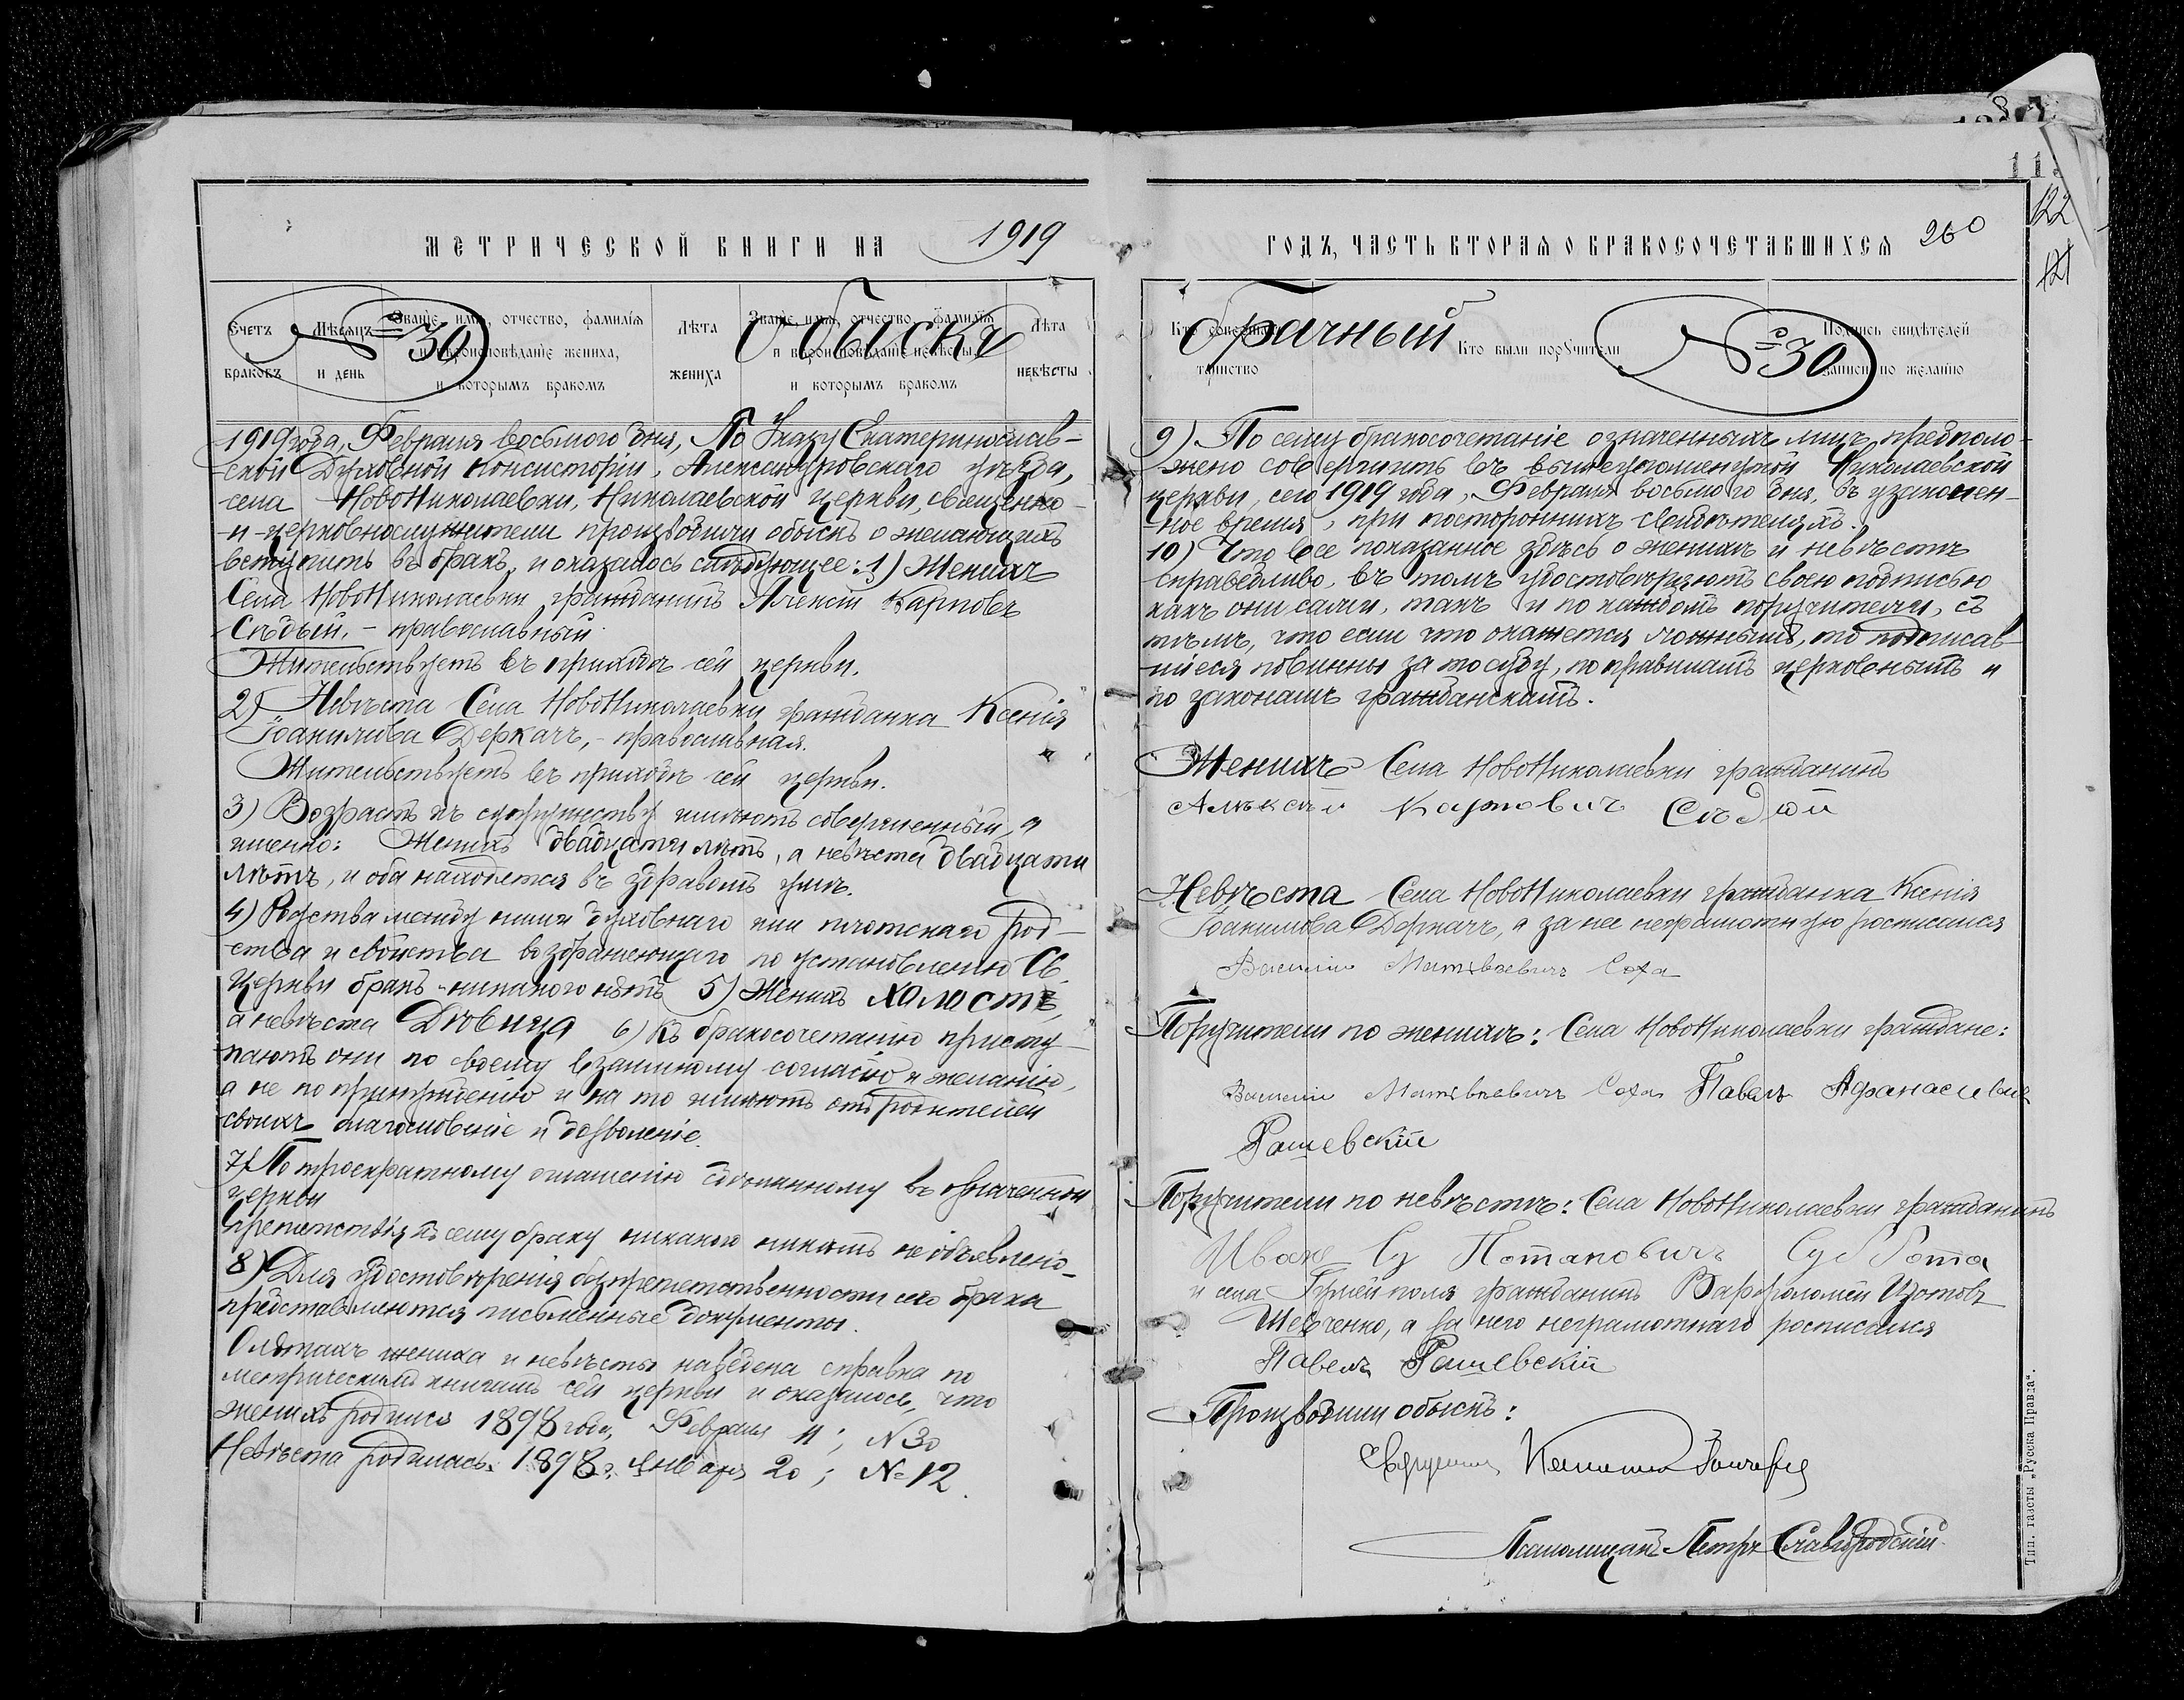 МЕТРИЧЕСКОЙ КНИГИ НА 1919
Счетъ браковъ
Мѣсяцъ и день
Званіе, имя, отчество, фамилія и вѣроисповѣданіе жениха, и которымъ бракомъ
Лѣта жениха
Званіе, имя, отчество, фамилія и вѣроисповѣданіе невѣсты, и которымъ бракомъ
Лѣта невѣсты
№ 30
Обыскъ
1919 года, Февраля восьмого дня, По Указу Екатеринослав-
ской Духовной Консисторіи, Александровскаго уѣзда,
села НовоНиколаевки, Николаевской церкви, священно-
и-церковнослужители производили обыскъ о желающихъ
вступить въ бракъ, и оказалось слѣдующее: 1) Женихъ
Села НовоНиколаевки гражданинъ Алексій Карповъ
Сѣдый, - православный.
Жительствуетъ въ приходѣ сей церкви.
2) Невѣста Села НовоНиколаевки гражданка Ксенія
Іоакимова Деркачъ, - православная.
Жительствуетъ въ приходѣ сей церкви.
3) Возрастъ къ супружеству имѣютъ совершенный, а
именно: Женихъ двадцати лѣтъ, а невѣста двадцати
лѣтъ, и оба находятся въ здравомъ умѣ.
4) Родства между ними духовнаго или плотскаго род-
ства и свойства возбраняющаго по установленію Св.
Церкви бракъ - никакого нѣтъ 5) Женихъ Холостъ,
а невѣста Дѣвица 6) Къ бракосочетанію присту-
паютъ они по своему взаимному согласію и желанію,
а не по принужденію и на то имѣютъ отъ родителей
своихъ благословеніе и дозволеніе.
7) По троекратному оглашенію сдѣланному въ означенной
церкви
препятствія къ сему браку никакого никѣмъ не объявлено-
8) Для удостовѣренія безпрепятственности сего брака
представляются письменные документы.
О лѣтахъ жениха и невѣсты наведена справка по
метрическимъ книгамъ сей церкви и оказалось, что
женихъ родился 1898 года, Февраля 11; №30
Невѣста родилась 1898 г. Января 20; №12.
ГОДЪ, ЧАСТЬ ВТОРАЯ О БРАКОСОЧЕТАВШИХСЯ 260
122
121
Кто совершалъ таинство
Кто были поручители
Подпись свидѣтелей записи по желанію
брачный
№ 30
9) По сему бракосочетаніе означенныхъ лицъ предполо-
жено совершить въ вышеупомянутой Николаевской
церкви, сего 1919 года, Февраля восьмого дня, въ узаконен-
ное время, при постороннихъ свидѣтеляхъ.
10) Что все показанное здѣсь о женихѣ и невѣстѣ
справедливо, въ томъ удостовѣряютъ своею подписью
какъ они сами, такъ и по каждомъ поручители, съ
тѣмъ, что если что окажется ложнымъ, то подписав-
шіеся повинны за то суду, по правиламъ церковнымъ и
по законамъ гражданскимъ.
Женихъ Села НовоНиколаевки гражданинъ
Алѣксѣй Карповичъ Сѣдой
Невѣста Села НовоНиколаевки гражданка Ксенія
Іоакимова Деркачъ, а за нее неграмотную росписался
Василій Матвѣевичъ Соха
Поручители по женихѣ: Села НовоНиколаевки граждане:
Василій Матвѣевичъ Соха Павелъ Афанасиевич
Рашевскій
Поручители по невѣстѣ: Села НовоНиколаевки гражданинъ
Иване Су Потаповичъ Субота
и села Гуляйполя гражданинъ Варфоломей Изотовъ
Шевченко, а за него неграмотнаго росписался
Павелъ Рашевскій
Производили обыскъ:
Священникъ
Псаломщикъ Петръ Славгородскій
Тип. газеты „Русска Правда“.